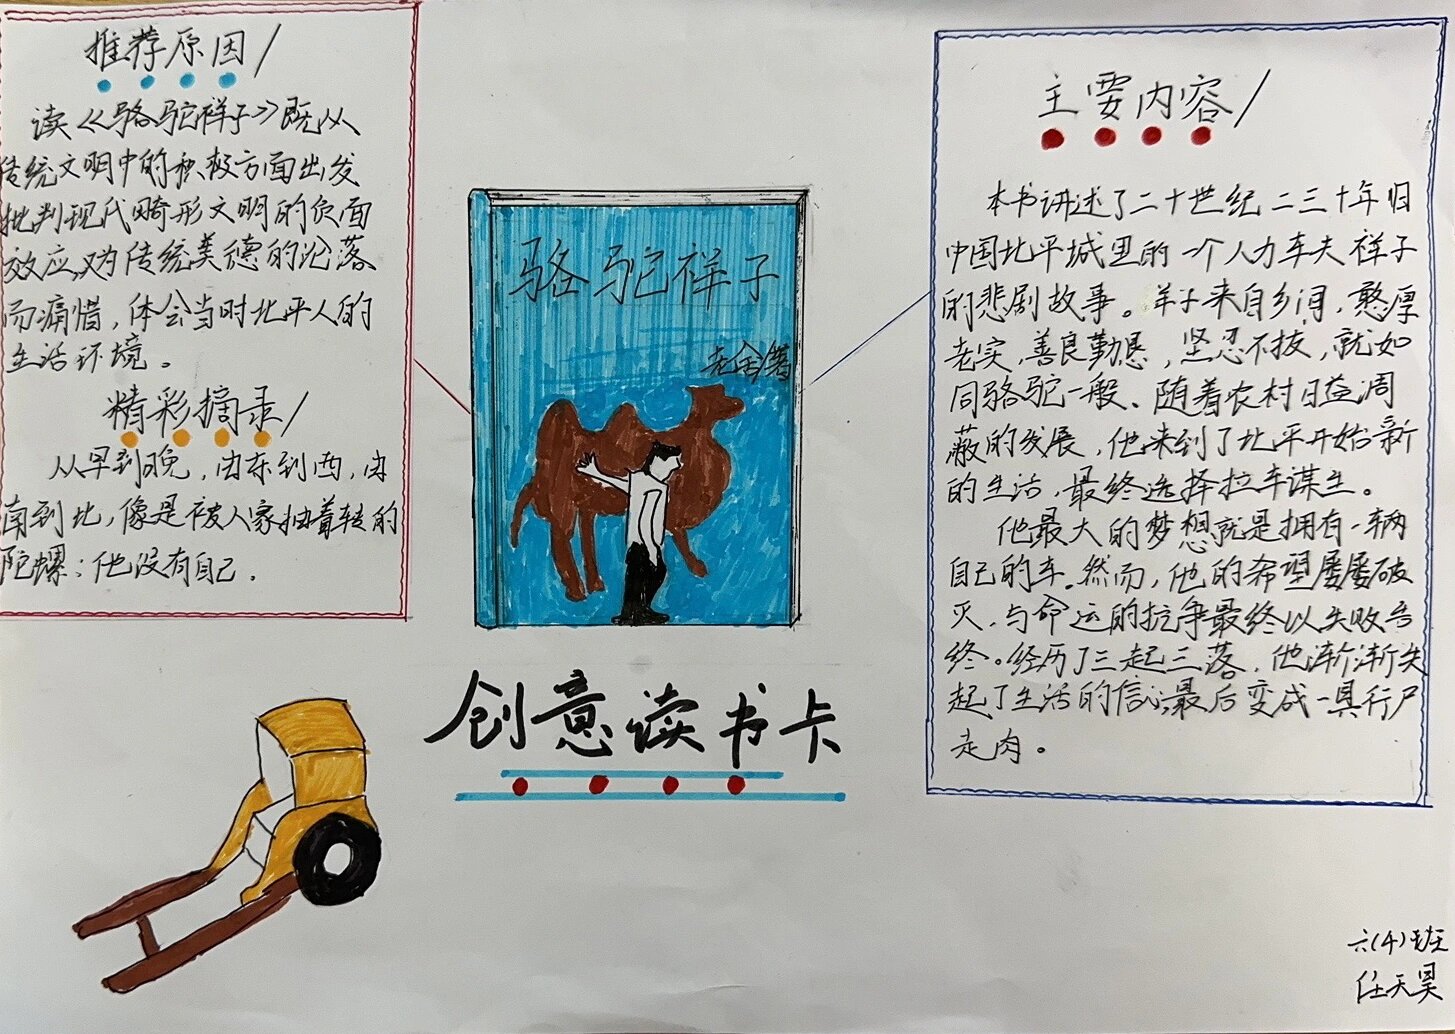 推荐原因/
读《骆驼祥子》既从
传统文明中的积极方面出发
批判现代畸形文明的负面
效应,又为传统美德的沦落
而痛惜，体会当时北平人的
生活环境。
精彩摘录/
从早到晚，由东到西，由
南到北，像是被人家抽着转的
陀螺；他没有自己.
骆驼祥子
老舍著
创意读书卡
主要内容/
本书讲述了二十世纪二三十年旧
中国北平城里的一个人力车夫祥子
的悲剧故事。祥子来自乡间，憨厚
老实，善良勤恳，坚忍不拔，就如
同骆驼一般、随着农村日益凋
蔽的发展，他来到了北平开始新
的生活，最终选择拉车谋生。
他最大的梦想就是拥有一辆
自己的车.然而，他的希望屡屡破
灭、与命运的抗争最终以失败告
终。经历了三起三落，他渐渐失
起了生活的信心,最后变成一具行尸
走肉。
六(4)班
任天昊